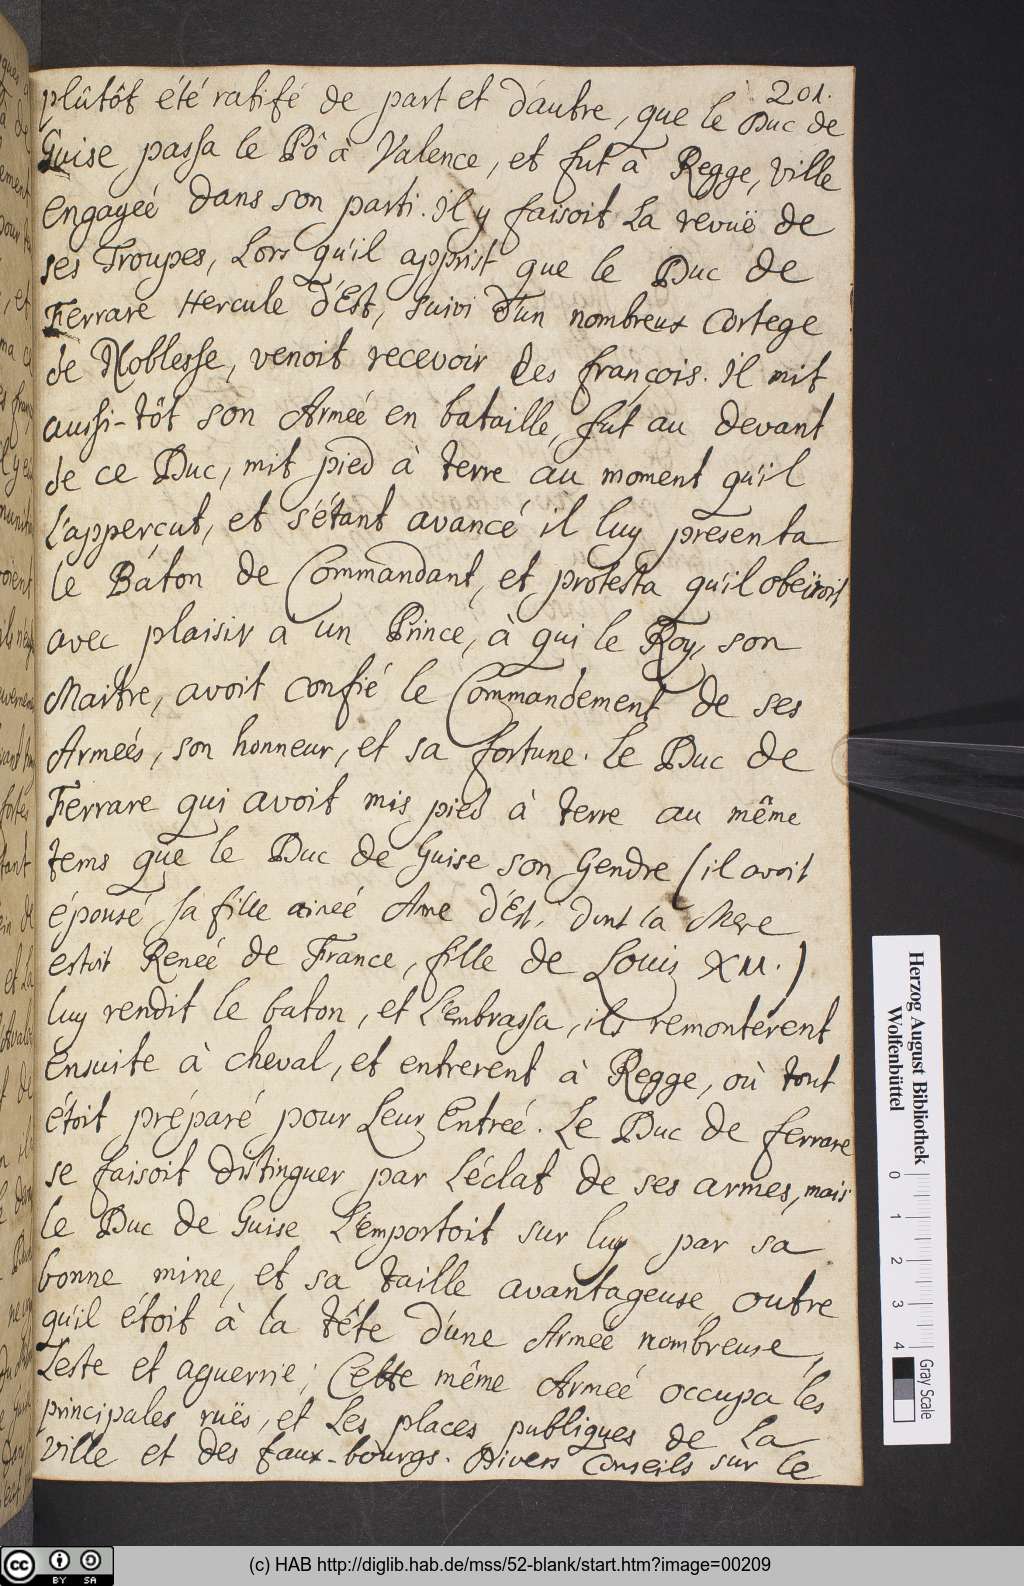 201.
plûtôt été ratifé de part et d'autre, que le Duc de
Guise passa le Pô à Valence, et fut à Regge, ville
engageé dans son parti. Il y faisoit La revuë de
ses Troupes, Lors qu'il apprist que le Duc de
Ferrare Hercule d'Est, suivi d'un nombreux Cortege
de Noblesse, venoit recevoir les françois. Il mit
aussi-tôt son Armeé en bataille, fut au devant
de ce Duc, mit pied à terre au moment qu'il
l'apperçut, et s'étant avancé il luy presenta
le Bâton de Commandant, et protesta qu'il obeïroit
avec plaisir a un Prince, à qui le Roy, son
Maitre, avoit confié le Commandement de ses
Armeés, son honneur, et sa fortune. Le Duc de
Ferrare qui avoit mis pied à terre au même
tems que le Duc de Guise son Gendre (il avoit
épousé sa fille aineé Ane d'Est, dont la Mere
estoit Reneé de France, fille de Louis XII.)
luy rendit le baton, et L'embrassa, ils remonterent
ensuite à cheval, et entrerent à Regge, où tout
étoit préparé pour Leur Entreé. Le Duc de ferrare
se faisoit distinguer par L'éclat de ses armes, mais
le Duc de Guise L'emportoit sur luy par sa
bonne mine, et sa taille avantageuse, outre
qu'il étoit à la tête d'une Armeé nombreuse,
Leste et aguerrie; Cette même Armeé occupa les
principales ruës, et Les places publiques de La
Ville et des faux-bourgs. Divers Conseils sur le
Herzog August Bibliothek
Wolfenbüttel
0 1 2 3 4
Gray Scale
BY SA
(c) HAB http://diglib.hab.de/mss/52-blank/start.htm?image=00209